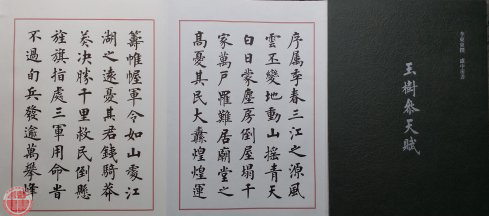 盧中南書
玉樹參天賦
序属季春三江之源風
雲丕變地動山摇青天
白日蒙塵房倒屋塌千
家萬戶罹難居廟堂之
髙憂其民大纛煌煌運
籌帷幄軍令如山處江
湖之遠憂其君鐵騎莽
莽决勝千里救民倒懸
旌旗指處三軍用命旹
不過旬兵發逾萬攀峰